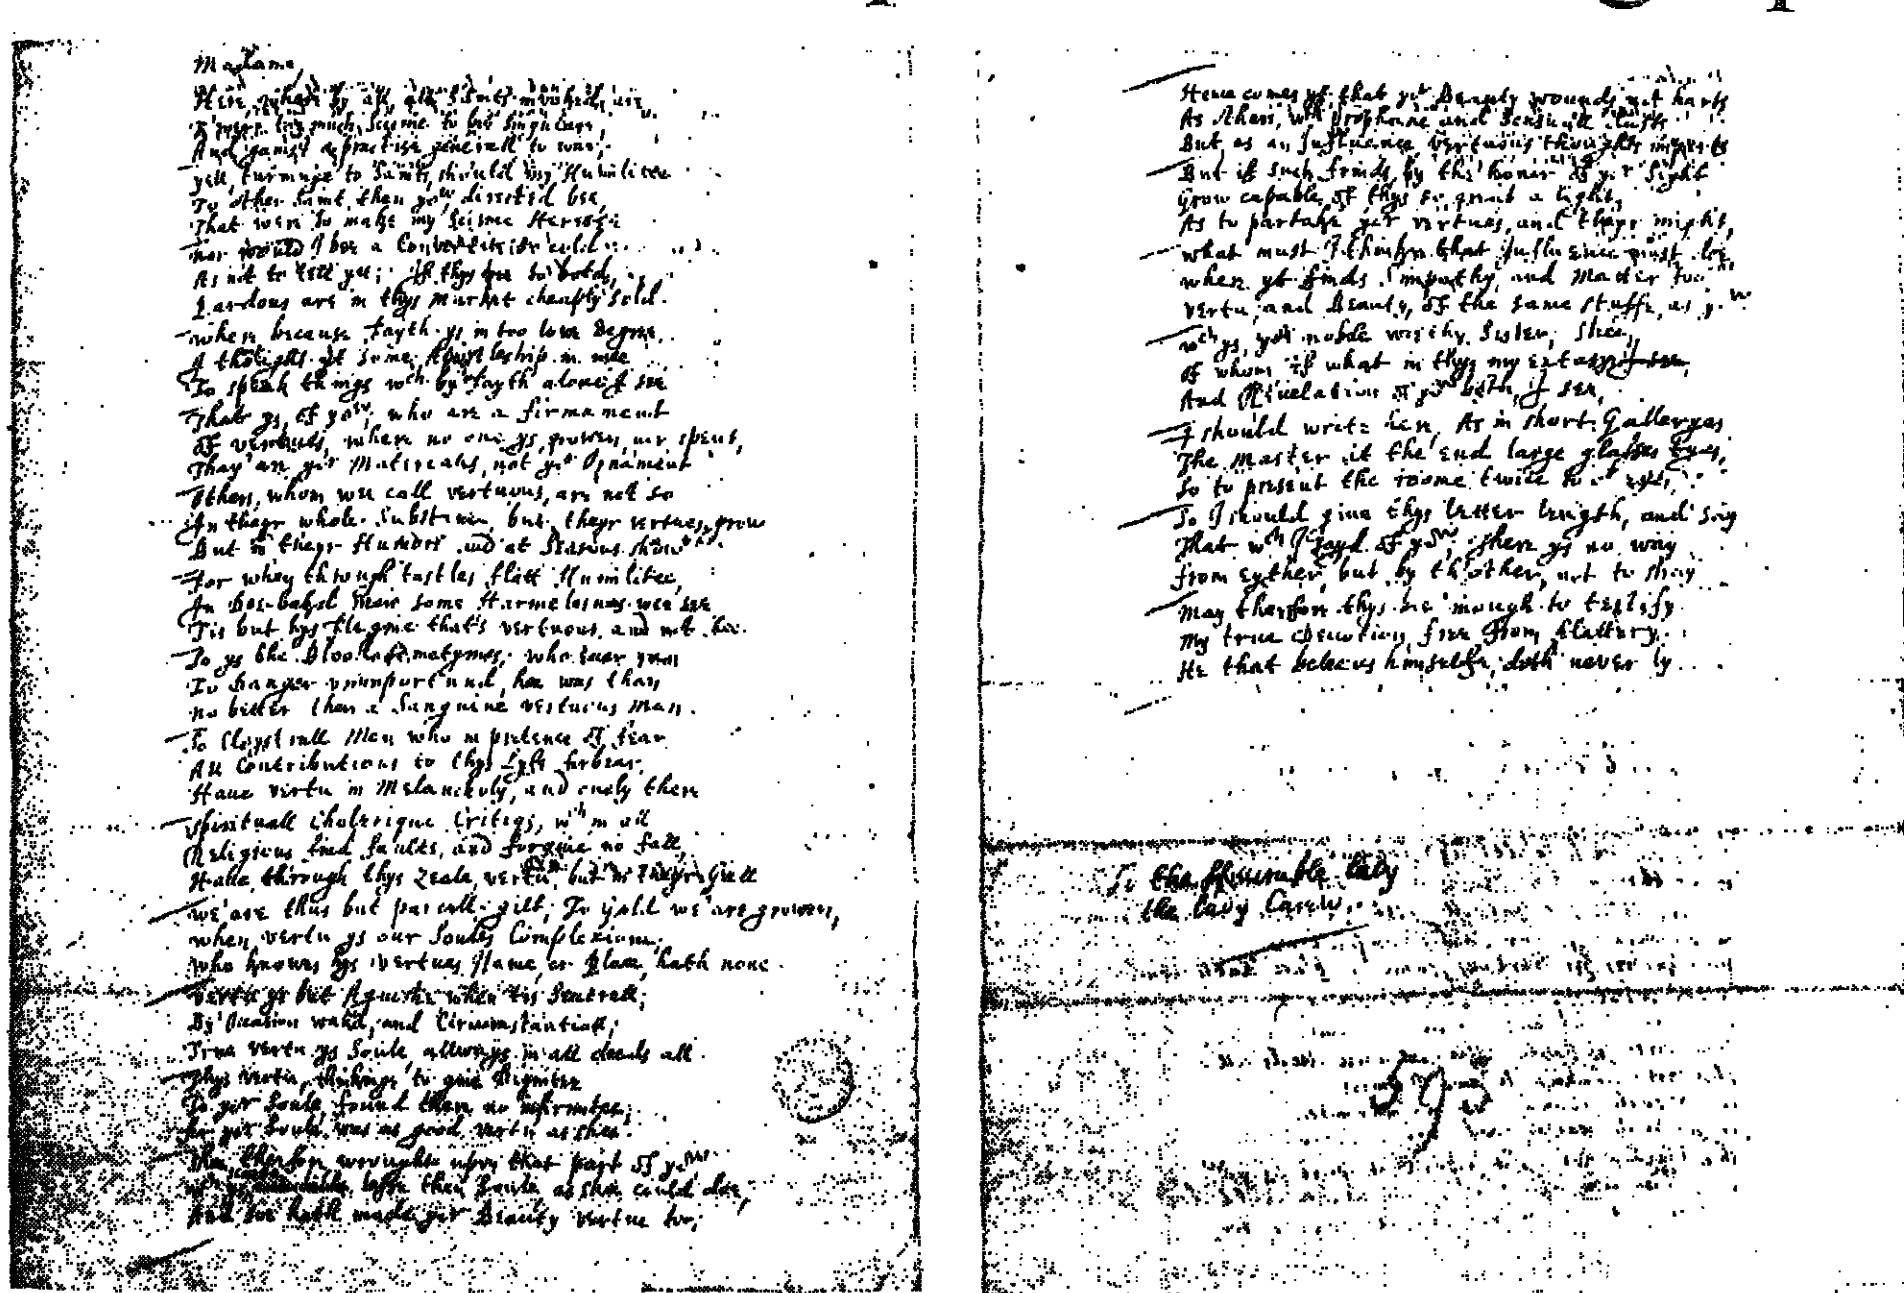 Madame,
Here, where by all, all Saints invoked are,
T'were too much Scisme to bee Singulare,
And gainst a practise generall to war;
yett, turninge to Saints, should my Humilitee
To other Saint, then yow, directed bee,
That were to make my Scisme Heresye
nor would I bee a Convertite so cold
As not to tell yt; If thys bee to bold,
Pardons are in thys Market cheaply sold.
when because fayth ys in too lowe Degree,
I thought yt some Apostleship in mee
To speak things wch by fayth alone I see
That ys, of yow, who are a firmament
Of vertues, where no one ys growen, nor spent,
Thay'are yor Materialls, not yor Ornament
Others, whom wee call vertuous, are not so
In theyr whole Substance, but theyr vertues grow
But in theyr Humors and at Seasons show
for when through tastles flatt Humilitee,
In Doe-bakd Men some Harmelesnes wee see
Tis but hys Flegme that's vertuous, and not hee.
So ys the Blood sometymes; who ever ran
To Danger unimportund, hee was than
no better then a Sanguine vertuous Man.
So Cloystrall Men who in pretence of fear
All Contributions to thys Lyfe forbear,
Have vertu in Melancholy, and onely there
spirituall Cholerique Critiqs, wch in all
Religions find faults, and forgive no fall,
Have, through thys Zeale, vertu, but in theyr Gall
we'are thus but parcell-gilt; To Gold we'are growen,
when vertu ys our Soules Complexione
who knowes hys vertues Name, or Place, hath none.
vertu ys but Aguishe when tis Severall;
By'Ocasion wakd, and Circumstantiall;
True vertu ys Soule, allways in all deeds all.
Thys vertu, thinkinge to give Dignitee
To yor Soule, found there no infirmitee;
for yor Soule was as good vertu as shee.
Shee therfore wrought upon that part of yow
lesse then Soule, as shee could doe,
And soe hath made yor Beauty vertue too;
Hence comes yt that yor Beauty wounds not harts
As Others, wth prophane and Sensuall Darts
But as an Influence vertuous thoughts imparts
But if such frinds, by the'honor of yor Sight
Grow capable of thys so great a light,
As to partake yor vertues, and theyr might,
what must I thinke that Influence must doe,
when yt finds Simpathy, and Matter too,
vertu, and Beauty, of the same stuffe, as yow
wch ys, yor noble worthy Sister; shee,
Of whom if what in thys my Extasye
And Revelation of yow both, I see,
I should write here, As in short Galleryes
The Master at the end large glasses tyes,
So to present the roome twice to or eyes,
So I should give thys letter length, and say
That wch I sayd of yow; There ys no way
from eyther, but by th'other, not to stray
May therfore thys bee'inough to testify
My true Devotion, free from flattery.
He that beleevs himselfe, doth never ly.
To the Honourable lady
the lady Carew.
595